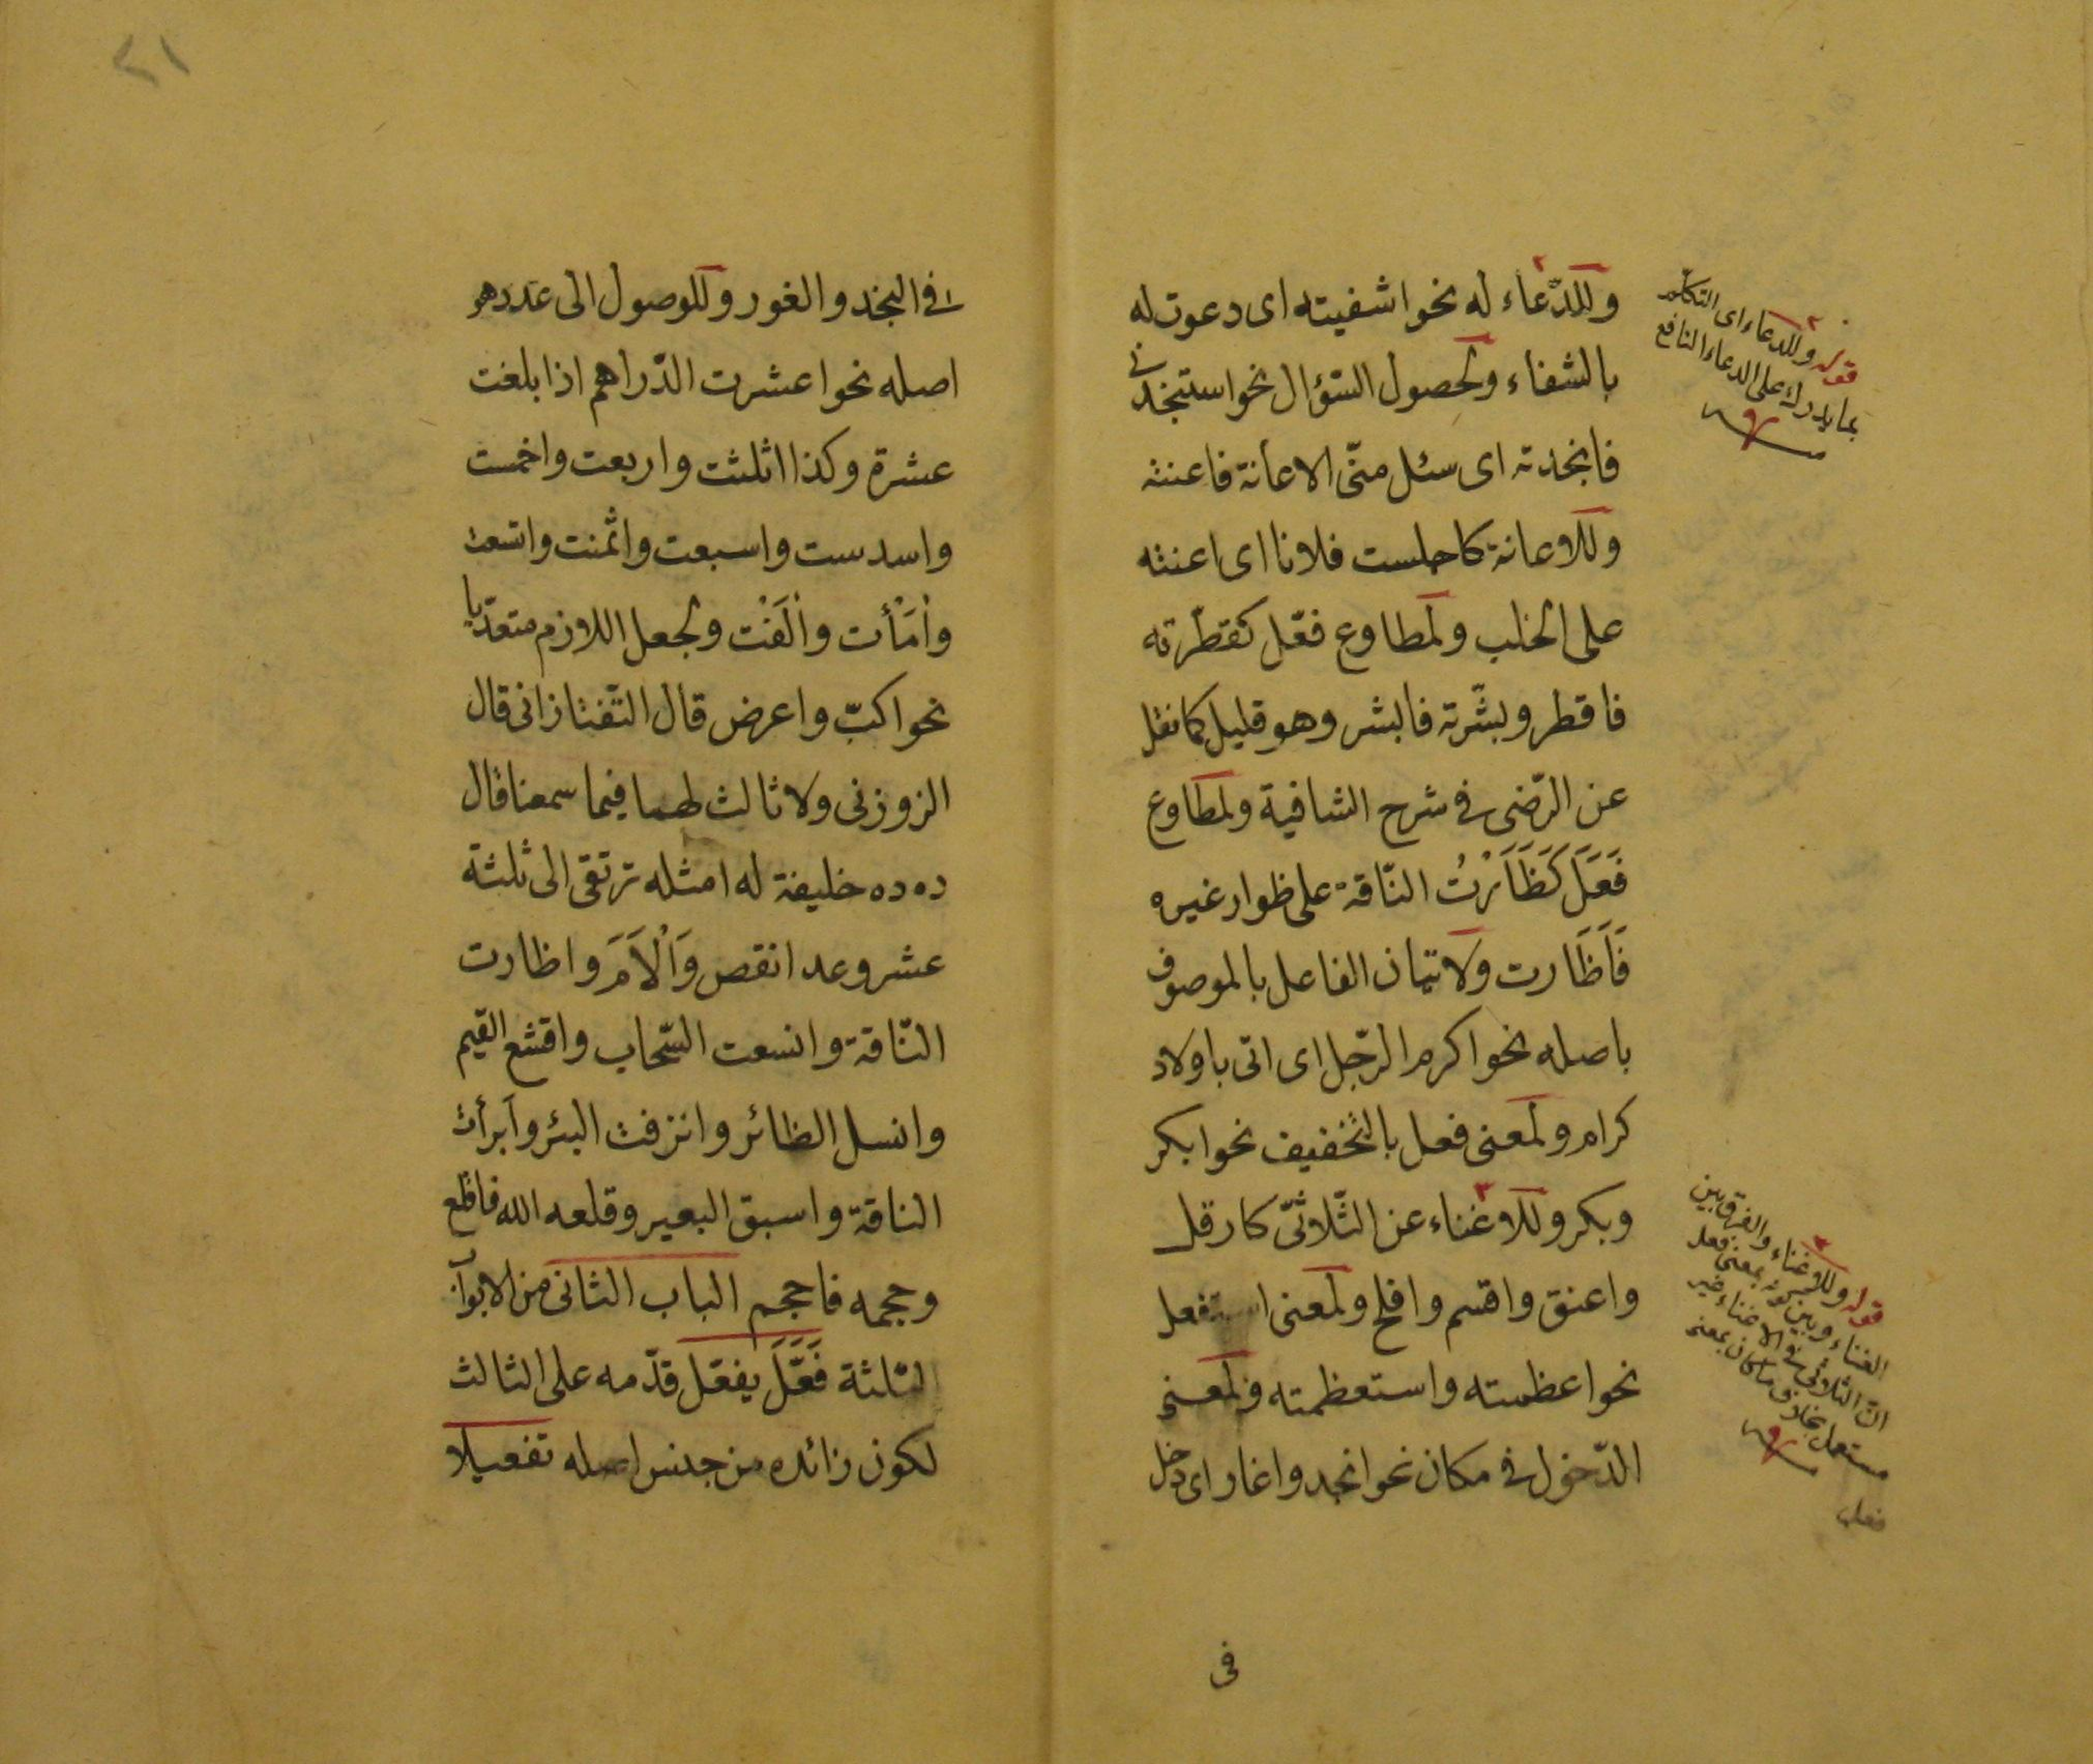 وللدّعاء له نحو اشفيته اى دعوت له
بالشفاء ولحصول السّؤال نحو استنجدنى
فانجدته اى سئل منّى الاعانة فاعنته
وللاعانة كاحلبت فلانا اى اعنته
على الحلب ولمطاوع فعّل كقطّرته
فاقطر وبشّرته فابشر وهو قليل كما نقل
عن الرّضى فى شرح الشافية ولمطاوع
فَعَلَ كَظَأَرْتُ النّاقة على ظوار غيره
فَاَظَارت ولاتيان الفاعل بالموصوف
باصله نحو اكرم الرّجل اى اتى باولاد
كرام ولمعنى فعل بالتخفيف نحو ابكر
وبكر وللاغناء عن الثّلاثىّ كارقل
واعنق واقسم وافلح ولمعنى استفعل
نحو اعظمته واستعظمته ولمعنى
الدّخول فى مكان نحو انجد واغار اى دخل
فى
قوله وللدعاء اى التكلم
بما يدل على الدعاء النافع
قوله وللاغناء والفرق بين
الغناء وبين كونه بمعنى فعل
انّ الثلاثى فى الاغناء غير
مستعمل بخلاف ما كان بمعنى
فعل
٢١
فى النجد والغور وللوصول الى عدد هو
اصله نحو اعشرت الدّراهم اذا بلغت
عشرة وكذا اثلثت واربعت واخمست
واسدست واسبعت واثمنت واتسعت
وأمْأَت وأٰلَفْت ولجعل اللازم متعدّيا
نحو اكبّ واعرض قال التّفتازانى قال
الزوزنى ولا ثالث لهما فيما سمعنا قال
ده ده خليفة له امثله ترتقى الى ثلثة
عشر وعد انقص وَاَلْاَمَ واظارت
النّاقة وانسعت السّحاب واقشع الغيم
وانسل الطائر وانزفت البئر وابرأت
الناقة واسبق البعير وقلعه الله فاقلع
وحجمه فاحجم الباب الثانى من الابواب
الثلثة فَعَّلَ يفعّل قدّمه على الثالث
لكون زائده من جنس اصله تفعيلا